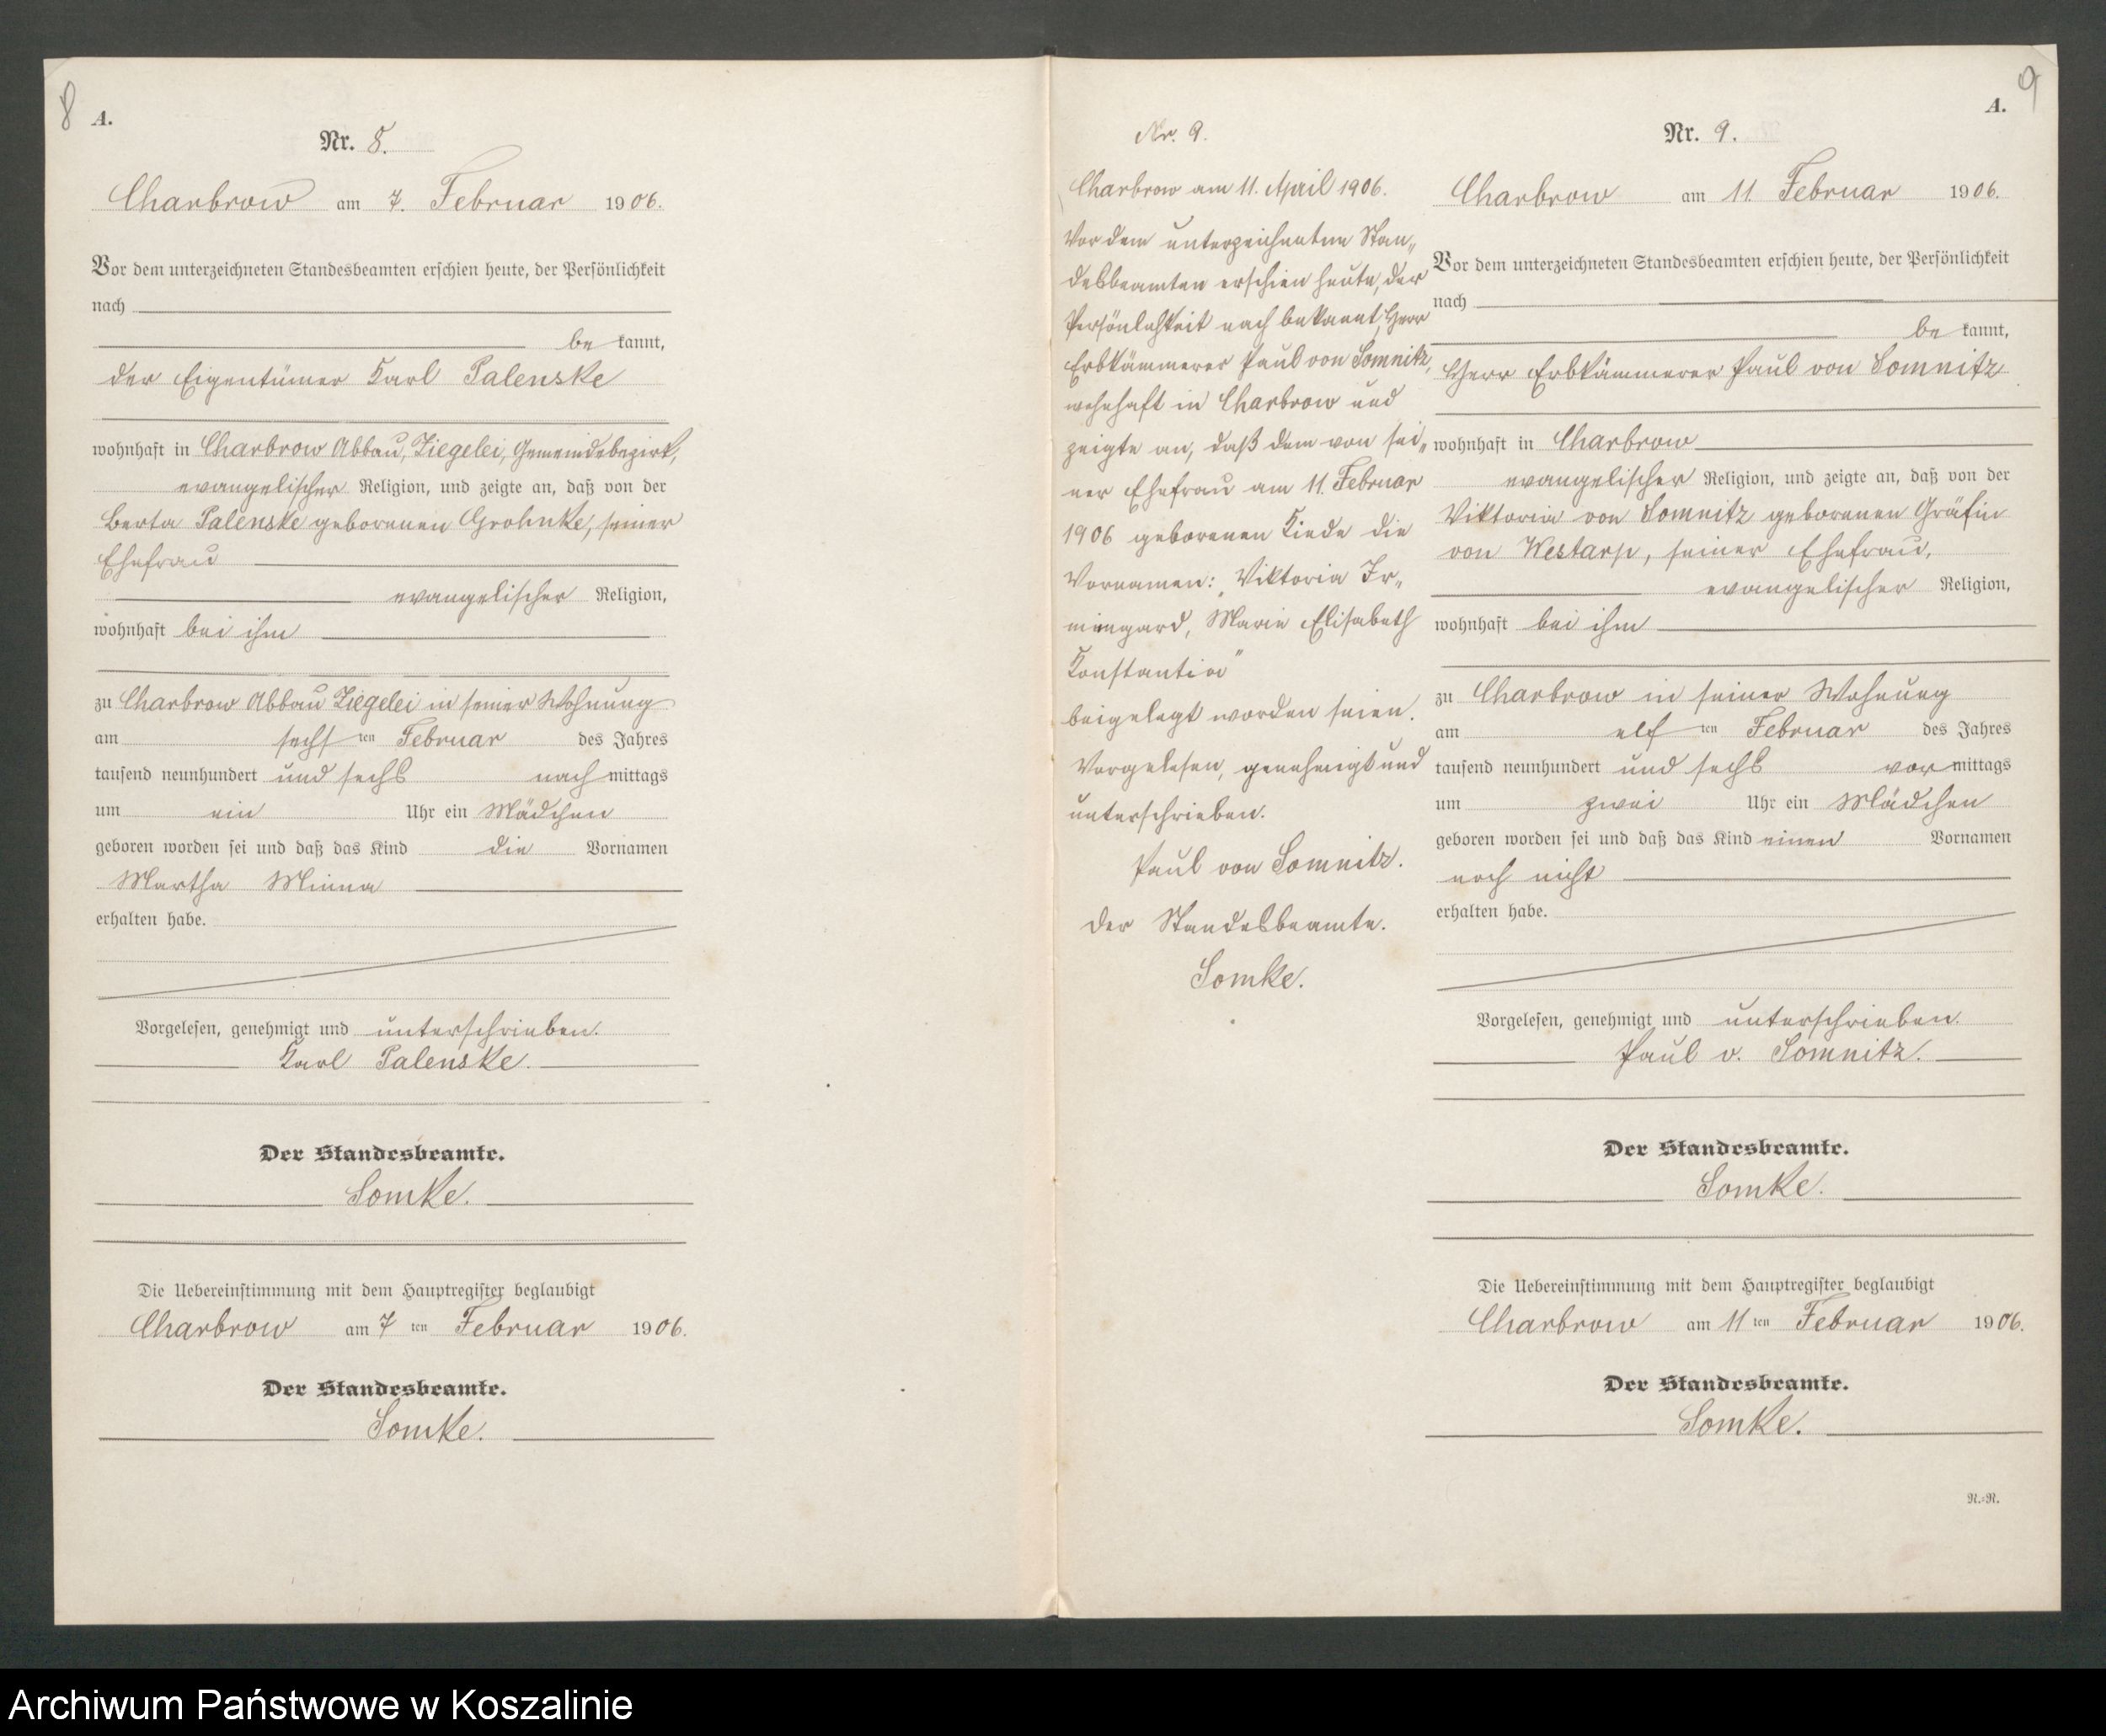 8
A.
Nr. 8.
Charbrow am 7. Februar 1906.
Vor dem unterzeichneten Standesbeamten erschien heute, der Persönlichkeit
nach
bekannt,
der Eigentümer Karl Palenske
wohnhaft in Charbrow Abbau, Ziegelei, Gemeindebezirk,
evangelischer Religion, und zeigte an, daß von der
Berta Palenske geborenen Grohnke, seiner
Ehefrau
evangelischer Religion,
wohnhaft bei ihm
zu Charbrow Abbau Ziegelei in seiner Wohnung
am sechsten Februar des Jahres
tausend neunhundert und sechs nachmittags
um ein Uhr ein Mädchen
geboren worden sei und daß das Kind die Vornamen
Martha Minna
erhalten habe.
Vorgelesen, genehmigt und unterschrieben.
Karl Palenske.
Der Standesbeamte.
Somke.
Die Uebereinstimmung mit dem Hauptregister beglaubigt
Charbrow am 7ten Februar 1906.
Der Standesbeamte.
Somke.
Nr. 9.
Charbrow am 11. April 1906.
Vor dem unterzeichneten Stan„
desbeamten erschien heute, der
Persönlichkeit nach bekannt, Herr
Erbkämmerer Paul von Somnitz,
wohnhaft in Charbrow und
zeigte an, daß dem von sei„
ner Ehefrau am 11. Februar
1906 geborenen Kinde die
Vornamen: „Viktoria Ir„
mingard, Marie Elisabeth
Konstantia"
beigelegt worden seien.
Vorgelesen, genehmigt und
unterschrieben.
Paul von Somnitz.
Der Standesbeamte.
Somke.
9
A.
Nr. 9.
Charbrow am 11. Februar 1906.
Vor dem unterzeichneten Standesbeamten erschien heute, der Persönlichkeit
nach
bekannt,
Herr Erbkämmerer Paul von Somnitz
wohnhaft in Charbrow
evangelischer Religion, und zeigte an, daß von der
Viktoria von Somnitz geborenen Gräfin
von Westarp, seiner Ehefrau,
evangelischer Religion,
wohnhaft bei ihm
zu Charbrow in seiner Wohnung
am elften Februar des Jahres
tausend neunhundert und sechs vormittags
um zwei Uhr ein Mädchen
geboren worden sei und daß das Kind einen Vornamen
noch nicht
erhalten habe.
Vorgelesen, genehmigt und unterschrieben.
Paul v. Somnitz.
Der Standesbeamte.
Somke.
Die Uebereinstimmung mit dem Hauptregister beglaubigt
Charbrow am 11ten Februar 1906.
Der Standesbeamte.
Somke.
N.=R.
Archiwum Państwowe w Koszalinie